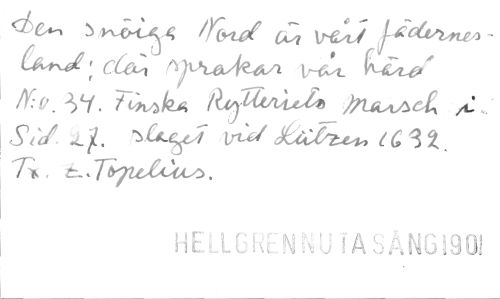 Den snöiga Nord är vårt fädernes-
land; där sprakar vår härd
N:o. 34. Finska Rytteriets Marsch i
Sid. 27. slaget vid Lützen 1632.
Tx. Z. Topelius.
HELLGREN NUTA SÅNG 1901